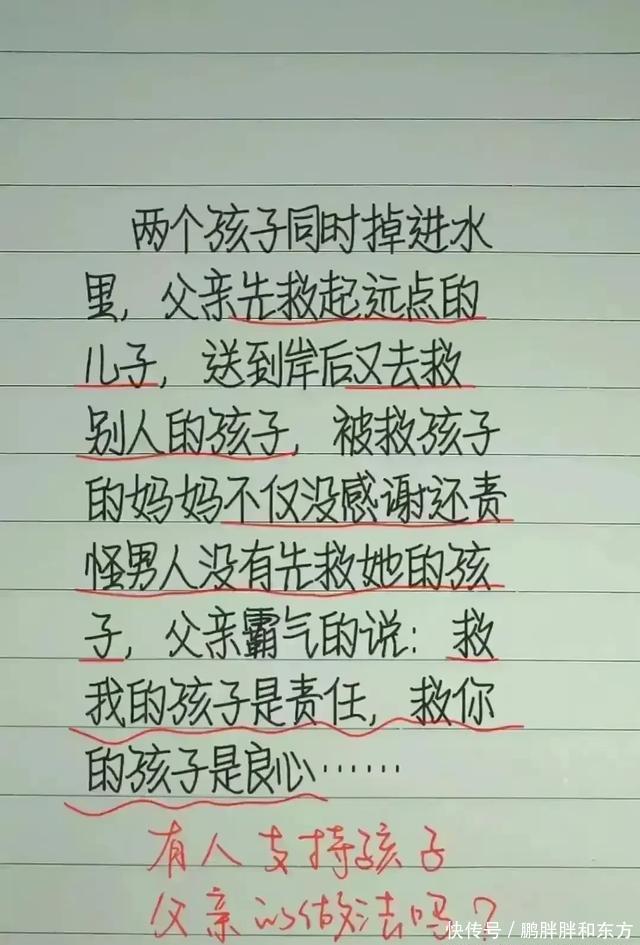 两个孩子同时掉进水
里，父亲先救起远点的
儿子，送到岸后又去救
别人的孩子，被救孩子
的妈妈不仅没感谢还责
怪男人没有先救她的孩
子，父亲霸气的说：救
我的孩子是责任，救你
的孩子是良心……
有人支持孩子
父亲的做法吗？
快传号／鹏胖胖和东方